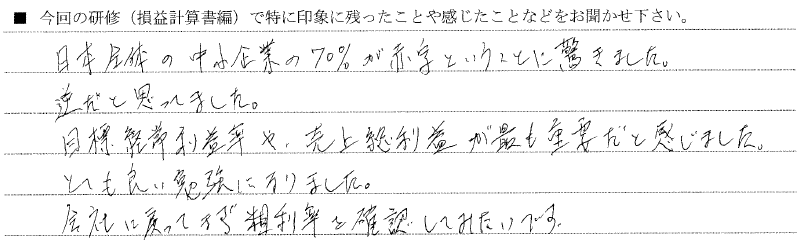 ■ 今回の研修（損益計算書編）で特に印象に残ったことや感じたことなどをお聞かせ下さい。
日本全体の中小企業の70%が赤字ということに驚きました。
逆だと思ってました。
目標経常利益率や、売上総利益が最も重要だと感じました。
とても良い勉強になりました。
会社に戻ってまず粗利率を確認してみたいです。